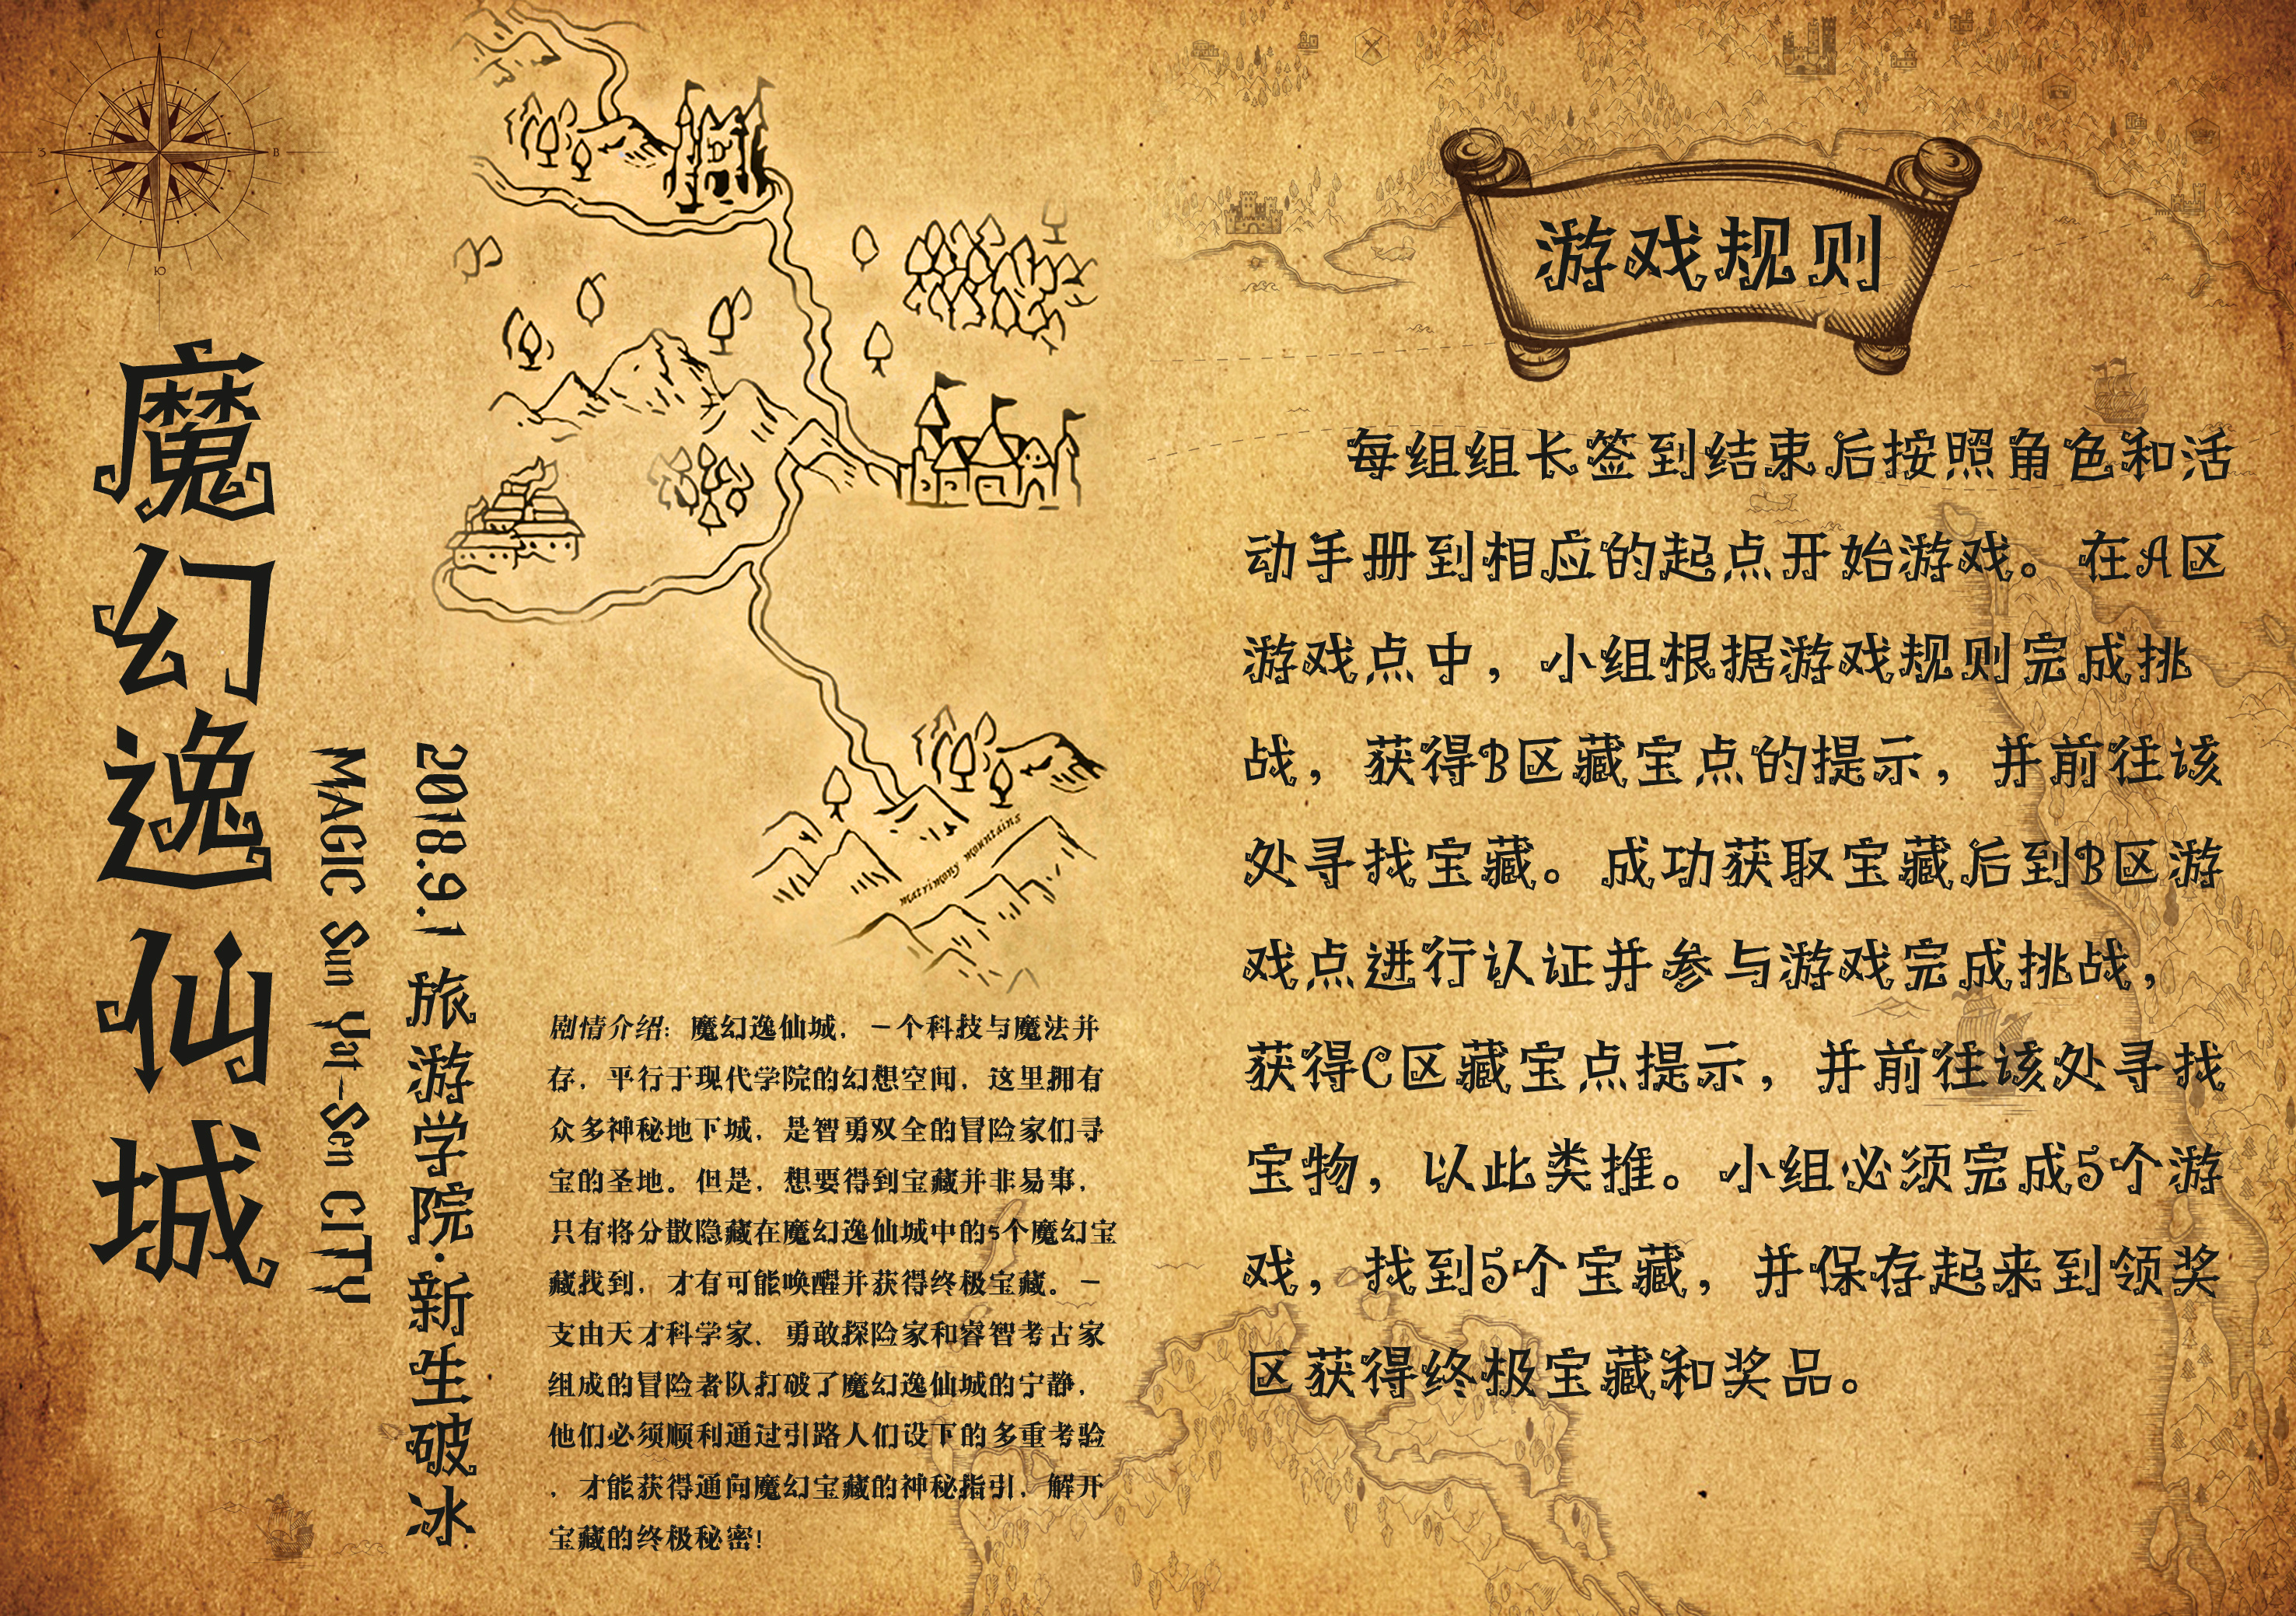 魔幻逸仙城
MAGIC Sun Yat-Sen CITY
2018.9.1 旅游学院·新生破冰
matrimony mountains
剧情介绍：魔幻逸仙城，一个科技与魔法并
存，平行于现代学院的幻想空间，这里拥有
众多神秘地下城，是智勇双全的冒险家们寻
宝的圣地。但是，想要得到宝藏并非易事，
只有将分散隐藏在魔幻逸仙城中的5个魔幻宝
藏找到，才有可能唤醒并获得终极宝藏。一
支由天才科学家、勇敢探险家和睿智考古家
组成的冒险者队打破了魔幻逸仙城的宁静，
他们必须顺利通过引路人们设下的多重考验
，才能获得通向魔幻宝藏的神秘指引，解开
宝藏的终极秘密！
游戏规则
每组组长签到结束后按照角色和活
动手册到相应的起点开始游戏。在A区
游戏点中，小组根据游戏规则完成挑
战，获得B区藏宝点的提示，并前往该
处寻找宝藏。成功获取宝藏后到B区游
戏点进行认证并参与游戏完成挑战，
获得C区藏宝点提示，并前往该处寻找
宝物，以此类推。小组必须完成5个游
戏，找到5个宝藏，并保存起来到领奖
区获得终极宝藏和奖品。
С
З
В
Ю